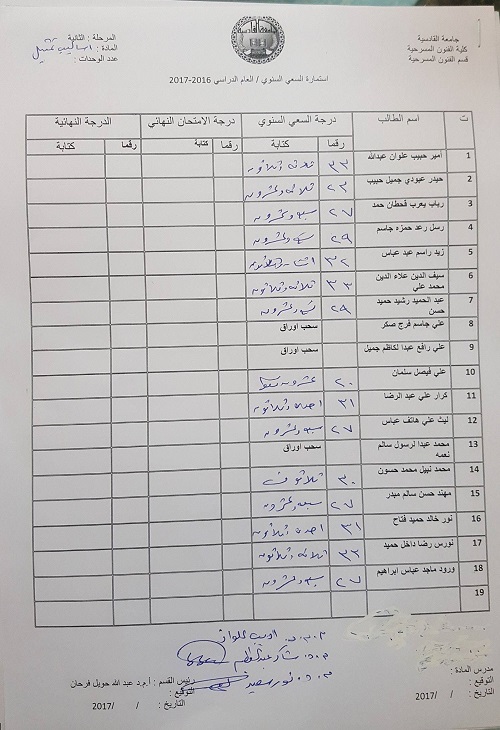 جامعة القادسية
كلية الفنون المسرحية
قسم الفنون المسرحية
المرحلة : الثانية
المادة : اساليب تمثيل
عدد الوحدات :
استمارة السعي السنوي / العام الدراسي 2016-2017
ت اسم الطالب درجة السعي السنوي درجة الامتحان النهائي الدرجة النهائية
رقما كتابة رقما كتابة رقما كتابة
1 امير حبيب علوان عبدالله ٣٣ ثلاثة وثلاثون
2 حيدر عبودي جميل حبيب ٢٣ ثلاثة وعشرون
3 رباب يعرب قحطان حمد ٢٧ سبعة وعشرون
4 رسل رعد حمزه جاسم ٢٩ تسعة وعشرون
5 زيد راسم عبد عباس ٣٢ اثنان وثلاثون
6 سيف الدين علاء الدين محمد علي ٣٣ ثلاثة وثلاثون
7 عبد الحميد رشيد حميد حسن ٢٩ تسعة وعشرون
8 علي جاسم فرج صكر سحب اوراق
9 علي رافع عبدا لكاظم جميل سحب اوراق
10 علي فيصل سلمان ٢٠ عشرون فقط
11 كرار علي عبد الرضا ٣١ احدى وثلاثون
12 ليث علي هاتف عباس ٢٧ سبعة وعشرون
13 محمد عبدا لرسول سالم نعمه سحب اوراق
14 محمد نبيل محمد حسون ٣٠ ثلاثون
15 مهند حسن سالم مبدر ٢٧ سبعة وعشرون
16 نور خالد حميد فتاح ٣١ احدى وثلاثون
17 نورس رضا داخل حميد ٣٣ ثلاثة وثلاثون
18 ورود ماجد عباس ابراهيم ٢٧ سبعة وعشرون
19
مدرس المادة :
التوقيع :
التاريخ : / / 2017
رئيس القسم : أ.م.د عبد الله حويل فرحان
التوقيع :
التاريخ : / / 2017